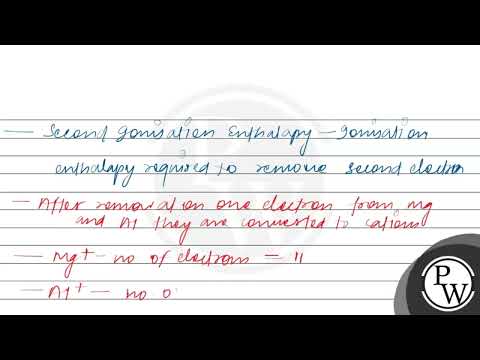 — Second Ionisation Enthalapy — Ionisation
enthalapy required to remove second electron
— After removation one electron from mg
and Al they are converted to cations
— Mg+ — no of electrons = 11
— Al+ — no o
PW